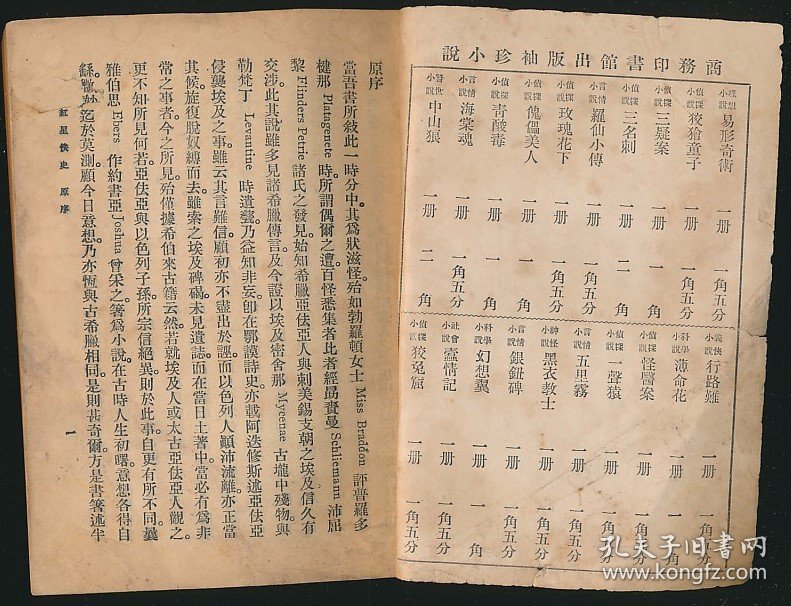 商務印書館出版袖珍小說
理想小說 易形奇術 一册 一角五分
偵探小說 狡獪童子 一册 一角五分
偵探小說 三疑案 一册 一角
偵探小說 三名刺 一册 二角
言情小說 羅仙小傳 一册 一角五分
偵探小說 玫瑰花下 一册 一角五分
偵探小說 傀儡美人 一册 一角
偵探小說 青酸毒 一册 一角
言情小說 海棠魂 一册 一角五分
警世小說 中山狼 一册 二角
義俠小說 行路難 一册 一角五分
科學小說 薄命花 一册 一角
偵探小說 怪醫案 一册 一角五分
偵探小說 一聲猿 一册 一角五分
言情小說 五里霧 一册 一角五分
神怪小說 黑衣教士 一册 一角五分
言情小說 銀鈕碑 一册 一角五分
科學小說 幻想翼 一册 一角
社會小說 蠹情記 一册 一角五分
偵探小說 狡兔窟 一册 一角五分
原序
當吾書所敍此一時分中。其爲狀滋怪。殆如勃羅頓女士 Miss Braddon 評普羅多
楗那 Platagenete 時。所謂偶爾之遭。百怪悉集者。比者經勗賚曼 Schliemann 沛屈
黎 Flinders Petrie 諸氏之發見。始知希臘亞伕亞人。與剌美錫支朝之埃及。信久有
交涉。此其說雖多見諸希臘傳言。及今證以埃及密舍那 Mycenae 古壠中殘物。與
勒梵丁 Levantine 時遺甕。乃益知非妄。卽在鄂謨詩史。亦載阿迭修斯述亞伕亞
侵襲埃及之事。雖云其言難信。顧初亦不盡出於誣。而以色列人顚沛流離。亦正當
其候。旋復脫奴縛而去。雖索之埃及碑碣。未見遺誌。而在當日土著中。當必有爲非
常之事者。今之所見。殆僅據希伯來古籍云然。若就埃及人或太古亞伕亞人觀之。
更不知所見何若。亞伕亞與以色列子孫所宗信絕異。則於此事。自更有所不同。曩
雅伯思 Ebers 作約書亞 Joshua 曾采之箸爲小說。在古時人生初曙。意想各得自
繇。眇紗迄於莫測。顧今日意想。乃亦恆與古希臘相同。是則甚奇爾。方是書箸述半
紅星佚史 原序
一
孔夫子旧书网
www.kongfz.com